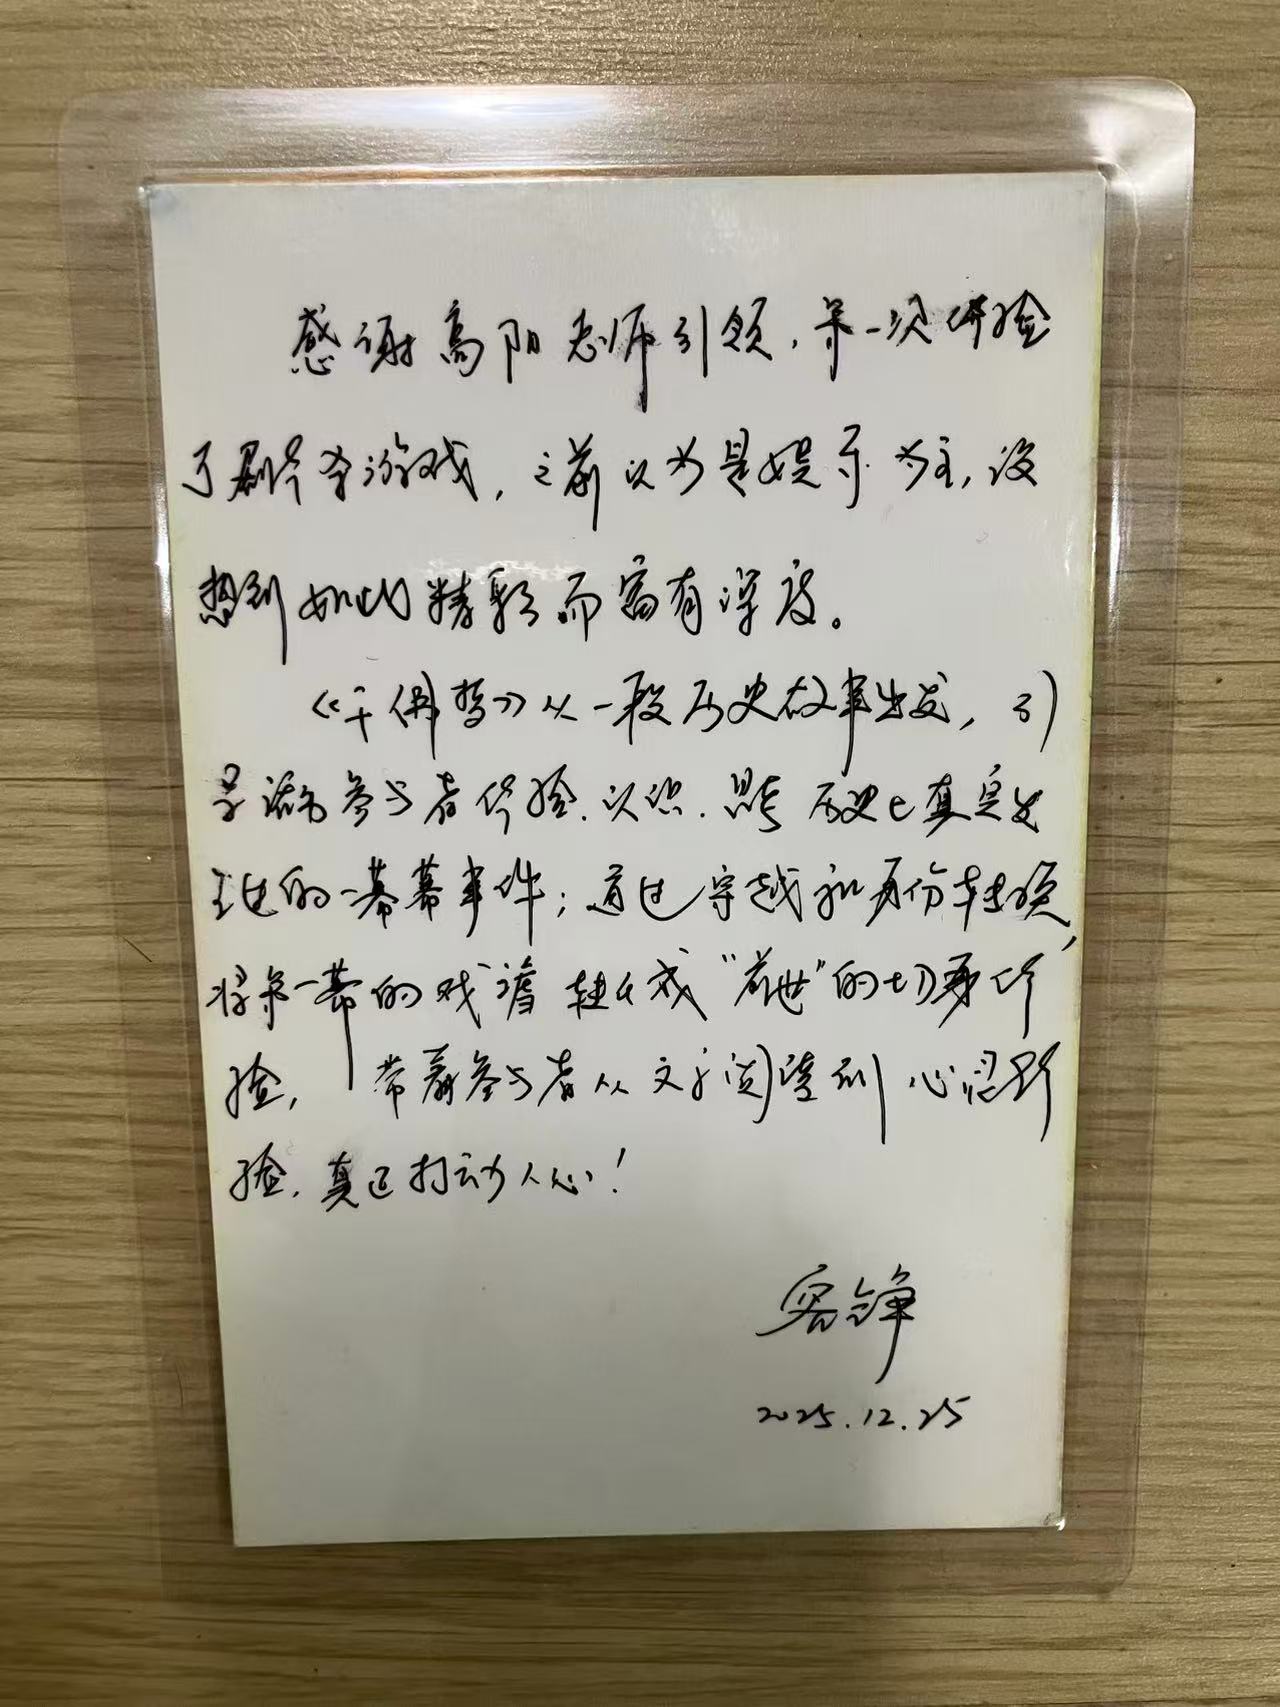 感谢高阳老师引领，第一次体验
了剧本杀游戏，之前以为是娱乐为主，没
想到如此精彩而富有深度。
《千佛劫》从一段历史故事出发，引
导诸多参与者体验、认识、思考历史上真实发
生过的一幕幕事件；通过穿越和身份转换，
将第一幕的戏谑转化成“前世”的切身体
验，带着参与者从文字阅读到心灵
验，真正打动人心！
容铮
2025.12.25